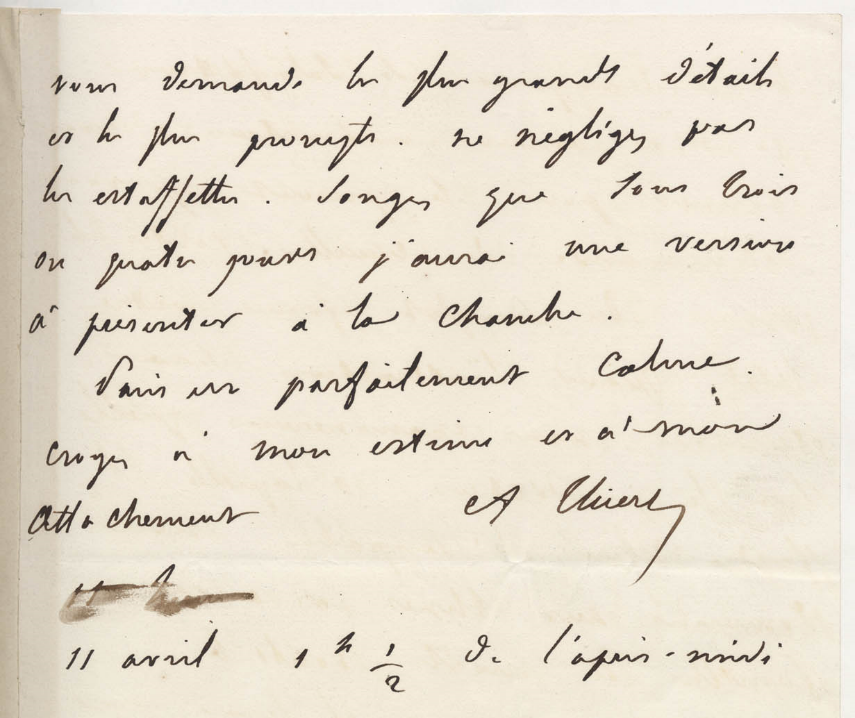 vous demande les plus grands détails
et les plus prompts. ne négligez pas
les estaffettes. Songez que sous trois
ou quatre jours j'aurai une version
à présenter à la chambre.
Paris est parfaitement calme.
croyez à mon estime et à mon
attachement A Thiers
11 avril 1 h 1/2 de l'après-midi